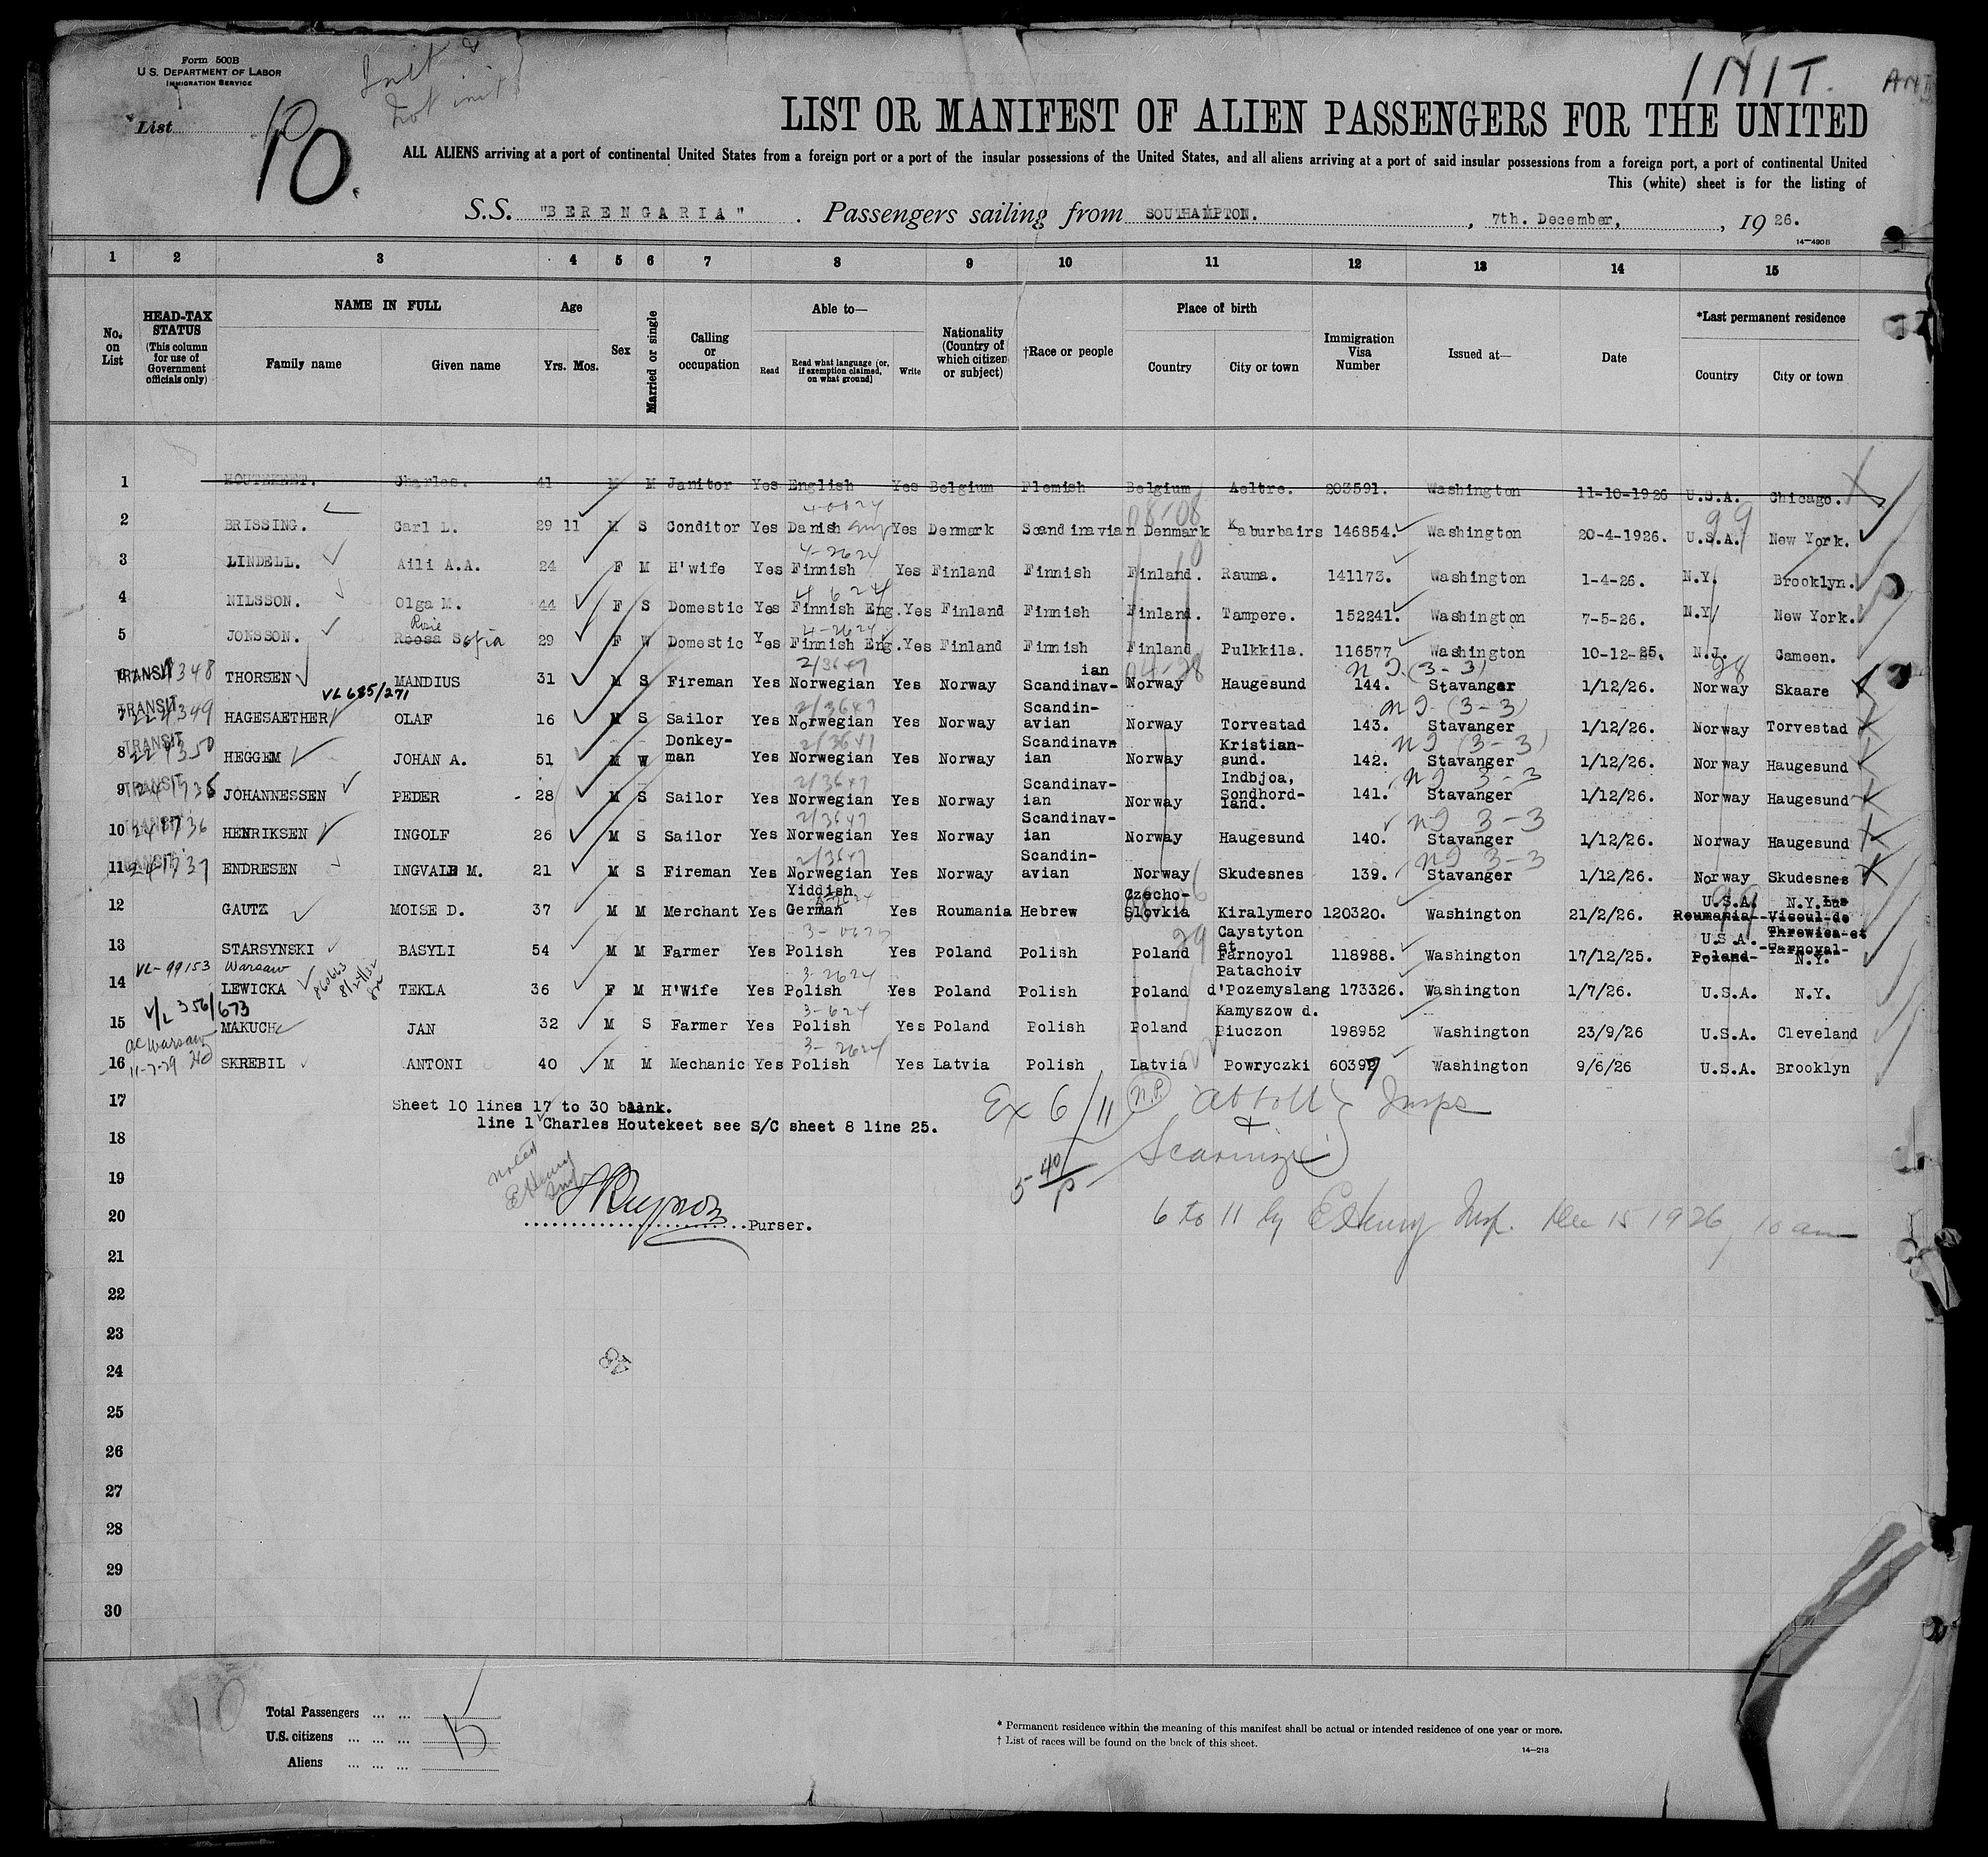 Form 500B
U.S. DEPARTMENT OF LABOR
IMMIGRATION SERVICE
Init &
Not init
INIT.
List
10.
LIST OR MANIFEST OF ALIEN PASSENGERS FOR THE UNITED
ALL ALIENS arriving at a port of continental United States from a foreign port or a port of the insular possessions of the United States, and all aliens arriving at a port of said insular possessions from a foreign port, a port of continental United
This (white) sheet is for the listing of
S.S. "BERENGARIA". Passengers sailing from SOUTHAMPTON. , 7th. December, , 19 26.
14—490 B
1 2 3 4 5 6 7 8 9 10 11 12 13 14 15
No. on List
HEAD-TAX STATUS (This column for use of Government officials only)
NAME IN FULL
Family name
Given name
Age
Yrs. Mos.
Sex
Married or single
Calling or occupation
Able to—
Read
Read what language (or, if exemption claimed, on what ground)
Write
Nationality (Country of which citizen or subject)
†Race or people
Place of birth
Country
City or town
Immigration Visa Number
Issued at—
Date
*Last permanent residence
Country
City or town
1 HOUTEKEET. Charles. 41 M M Janitor Yes English Yes Belgium Flemish Belgium Aeltre. 203591. Washington 11-10-1926 U.S.A. Chicago.
2 BRISSING. Carl L. 29 11 M S Conditor Yes Danish Eng Yes Denmark Scandinavian Denmark Kaburbairs 146854. Washington 20-4-1926. U.S.A. New York.
4-2624
3 LINDELL. Aili A.A. 24 F M H'wife Yes Finnish Yes Finland Finnish Finland. Rauma. 141173. Washington 1-4-26. N.Y. Brooklyn.
4 624
4 NILSSON. Olga M. 44 F S Domestic Yes Finnish Eng. Yes Finland Finnish Finland. Tampere. 152241. Washington 7-5-26. N.Y. New York.
Rosie 4-2624
5 JONSSON. Roosa Sofia 29 F W Domestic Yes Finnish Eng. Yes Finland Finnish Finland Pulkkila. 116577 Washington 10-12-25. N.J. Cameen.
2/3647 NI (3-3)
6 TRANSIT THORSEN MANDIUS 31 M S Fireman Yes Norwegian Yes Norway Scandinavian Norway Haugesund 144. Stavanger 1/12/26. Norway Skaare
VL 685/271
2/3647 NI (3-3)
7 TRANSIT HAGESAETHER OLAF 16 M S Sailor Yes Norwegian Yes Norway Scandin-avian Norway Torvestad 143. Stavanger 1/12/26. Norway Torvestad
2/3647 NI (3-3)
8 TRANSIT HEGGEM JOHAN A. 51 M W Donkey-man Yes Norwegian Yes Norway Scandinavn ian Norway Kristian-sund. 142. Stavanger 1/12/26. Norway Haugesund
2/3647 NI 3-3
9 TRANSIT JOHANNESSEN PEDER 28 M S Sailor Yes Norwegian Yes Norway Scandinav-ian Norway Indbjoa, Sondhord-land. 141. Stavanger 1/12/26. Norway Haugesund
2/3647 NI 3-3
10 TRANSIT HENRIKSEN INGOLF 26 M S Sailor Yes Norwegian Yes Norway Scandinav-ian Norway Haugesund 140. Stavanger 1/12/26. Norway Haugesund
2/3647 NI 3-3
11 TRANSIT ENDRESEN INGVALD M. 21 M S Fireman Yes Norwegian Yes Norway Scandin-avian Norway Skudesnes 139. Stavanger 1/12/26. Norway Skudesnes
12 GAUTZ MOISE D. 37 M M Merchant Yes Yiddish German Yes Roumania Hebrew Czecho-Slovkia Kiralymero 120320. Washington 21/2/26. U.S.A. N.Y. Roumania Viseul-de
13 STARSYNSKI BASYLI 54 M M Farmer Yes Polish Yes Poland Polish Poland Caystyton et Farnoyol 118988. Washington 17/12/25. U.S.A. Poland- Threwica-et Tarnoyal- N.Y.
VL-99153 Warsaw 860663 8/24/32 3-2624
14 LEWICKA TEKLA 36 F M H'Wife Yes Polish Yes Poland Polish Poland Patachoiv d'Pozemyslang 173326. Washington 1/7/26. U.S.A. N.Y.
V/L 356/673 3-624
15 MAKUCH JAN 32 M S Farmer Yes Polish Yes Poland Polish Poland Kamyszow d. Piuczon 198952 Washington 23/9/26 U.S.A. Cleveland
ac Warsaw 11-7-29 3-2624
16 SKREBIL ANTONI 40 M M Mechanic Yes Polish Yes Latvia Polish Latvia Powryczki 60397 Washington 9/6/26 U.S.A. Brooklyn
17 Sheet 10 lines 17 to 30 blank.
line 1 Charles Houtekeet see S/C sheet 8 line 25.
Ex 6/11 N.P. Abbott & Insps
18
noted EHenry Insp
19
5 40/P
20 Purser.
6 to 11 by EHenry Insp. Dec 15 1926, 10 am
21
22
23
24
25
26
27
28
29
30
10
Total Passengers ... ...
U.S. citizens ... ... ... 15
Aliens ... ... ...
* Permanent residence within the meaning of this manifest shall be actual or intended residence of one year or more.
† List of races will be found on the back of this sheet.
14—213